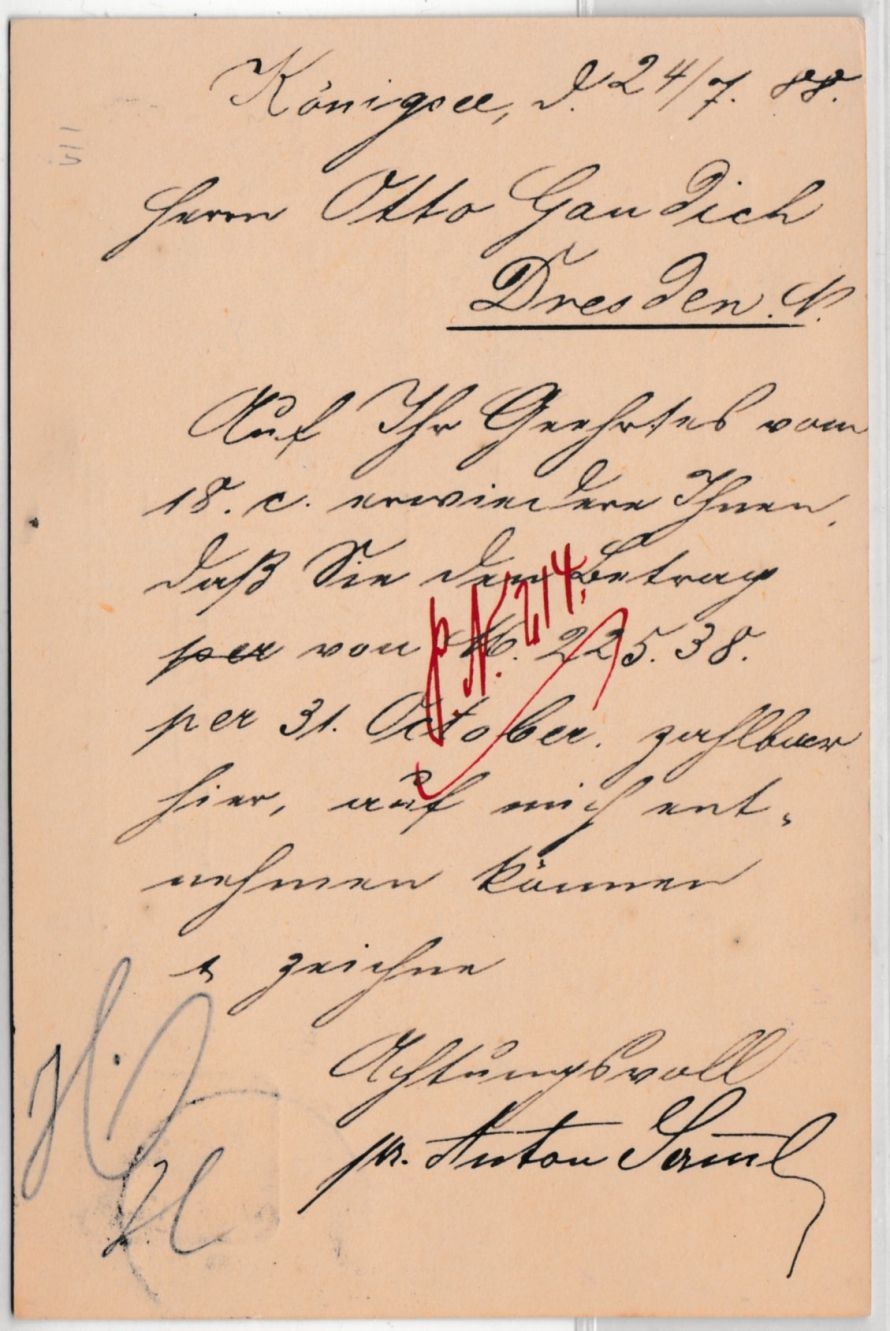 Königsee, d. 24/7. 88.
Herrn Otto Gaudich
Dresden. N.
Auf Ihr Geehrtes vom
18. c. erwiedere Ihnen,
daß Sie den Betrag
per von M. 225.38.
per 31. October. zahlbar
hier, auf mich ent-
nehmen können
& zeichne
Achtungsvoll
pr. Anton
P. N. 214.